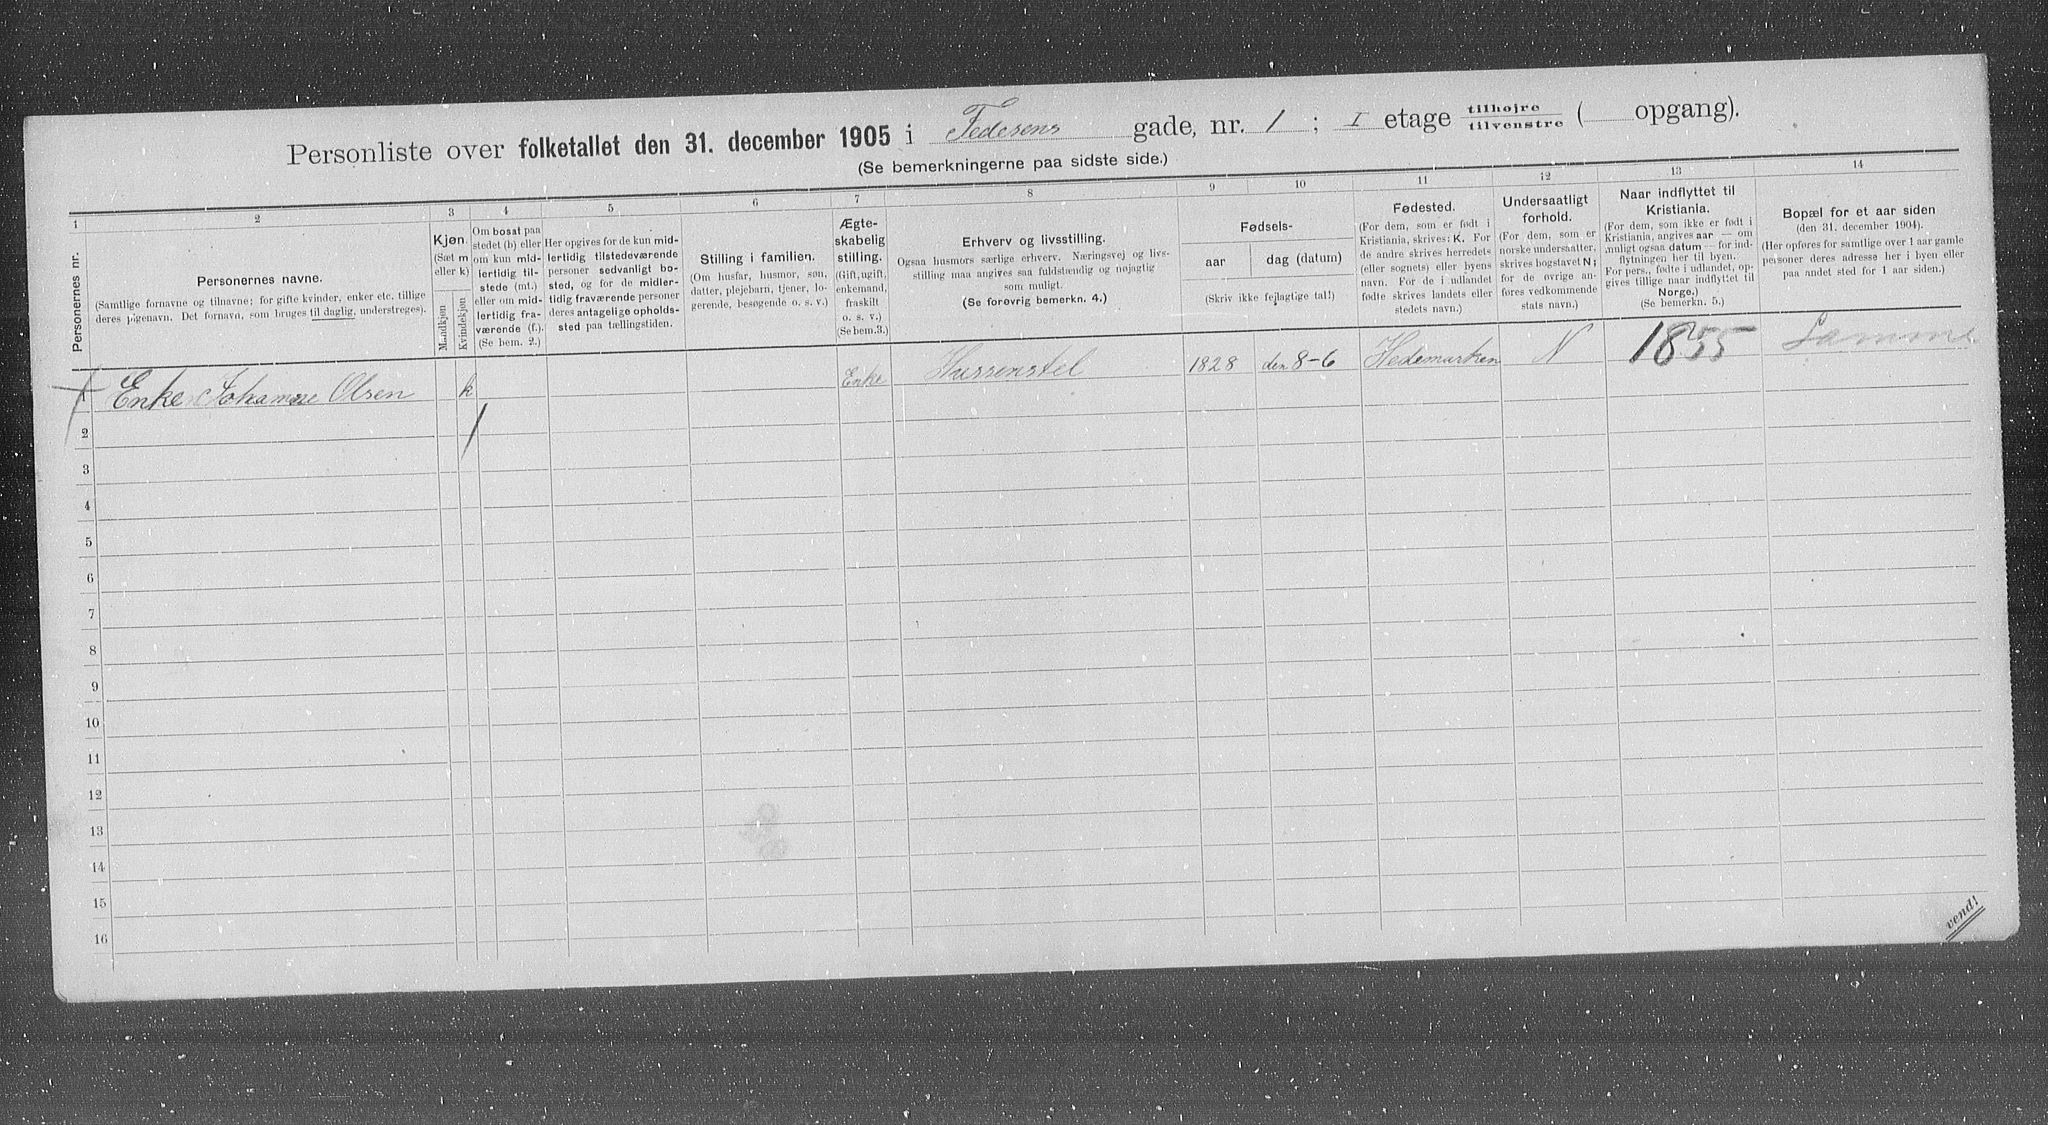 Personliste over folketallet den 31. december 1905 i Fedesens gade, nr. 1 ; I etage tilhøjre / tilvenstre ( opgang).
(Se bemerkningerne paa sidste side.)
1 2 3 4 5 6 7 8 9 10 11 12 13 14
Personernes nr.
Personernes navne.
(Samtlige fornavne og tilnavne; for gifte kvinder, enker etc. tillige
deres pigenavn. Det fornavn, som bruges til daglig, understreges).
Kjøn.
(Sæt m
eller k)
Mandkjøn
Kvindekjøn
Om bosat paa
stedet (b) eller
om kun mid-
lertidig til-
stede (mt.)
eller om mid-
lertidig fra-
værende (f.).
(Se bem. 2.)
Her opgives for de kun mid-
lertidig tilstedeværende
personer sedvanligt bo-
sted, og for de midler-
tidig fraværende personer
deres antagelige opholds-
sted paa tællingstiden.
Stilling i familien.
(Om husfar, husmor, søn,
datter, plejebarn, tjener, lo-
gerende, besøgende o. s. v.)
Ægte-
skabelig
stilling.
(Gift, ugift,
enkemand,
fraskilt
o. s. v.)
(Se bem. 3.)
Erhverv og livsstilling.
Ogsaa husmors særlige erhverv. Næringsvej og livs-
stilling maa angives saa fuldstændig og nøjagtig
som muligt.
(Se forøvrig bemerkn. 4.)
Fødsels-
aar
dag (datum)
(Skriv ikke fejlagtige tal!)
Fødested.
(For dem, som er født i
Kristiania, skrives: K. For
de andre skrives herredets
(eller sognets) eller byens
navn. For de i udlandet
fødte skrives landets eller
stedets navn.)
Undersaatligt
forhold.
(For dem, som er
norske undersaatter,
skrives bogstavet N;
for de øvrige an-
føres vedkommende
stats navn.)
Naar indflyttet til
Kristiania.
(For dem, som ikke er født i
Kristiania, angives aar — om
muligt ogsaa datum — for ind-
flytningen her til byen.
For pers., fødte i udlandet, op-
gives tillige naar indflyttet til
Norge.)
(Se bemerkn. 5.)
Bopæl for et aar siden
(den 31. december 1904).
(Her opføres for samtlige over 1 aar gamle
personer deres adresse her i byen eller
paa andet sted for 1 aar siden.)
1 Enke Johanne Olsen k Enke 1828 den 8-6 Hedemarken N 1855 Samme
2
3
4
5
6
7
8
9
10
11
12
13
14
15
16
vend!